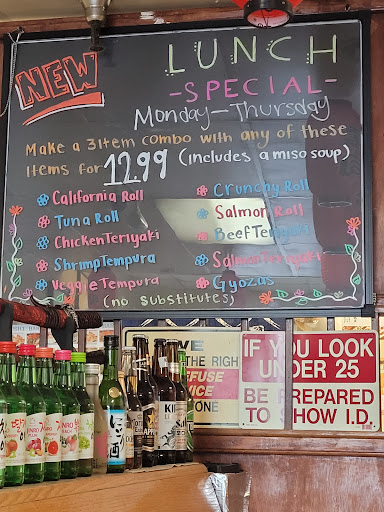 NEW
LUNCH
-SPECIAL-
Monday-Thursday
Make a 3item combo with any of these
items for 12.99 (includes a miso soup)
California Roll
Tuna Roll
Chicken Teriyaki
Shrimp Tempura
Veggie Tempura
Crunchy Roll
Salmon Roll
Beef Teriyaki
Salmon Teriyaki
Gyozas
(no substitutes)
THE RIGH
EFUSE
VICE
ONE
IF YOU LOOK
UNDER 25
BE PREPARED
TO SHOW I.D.